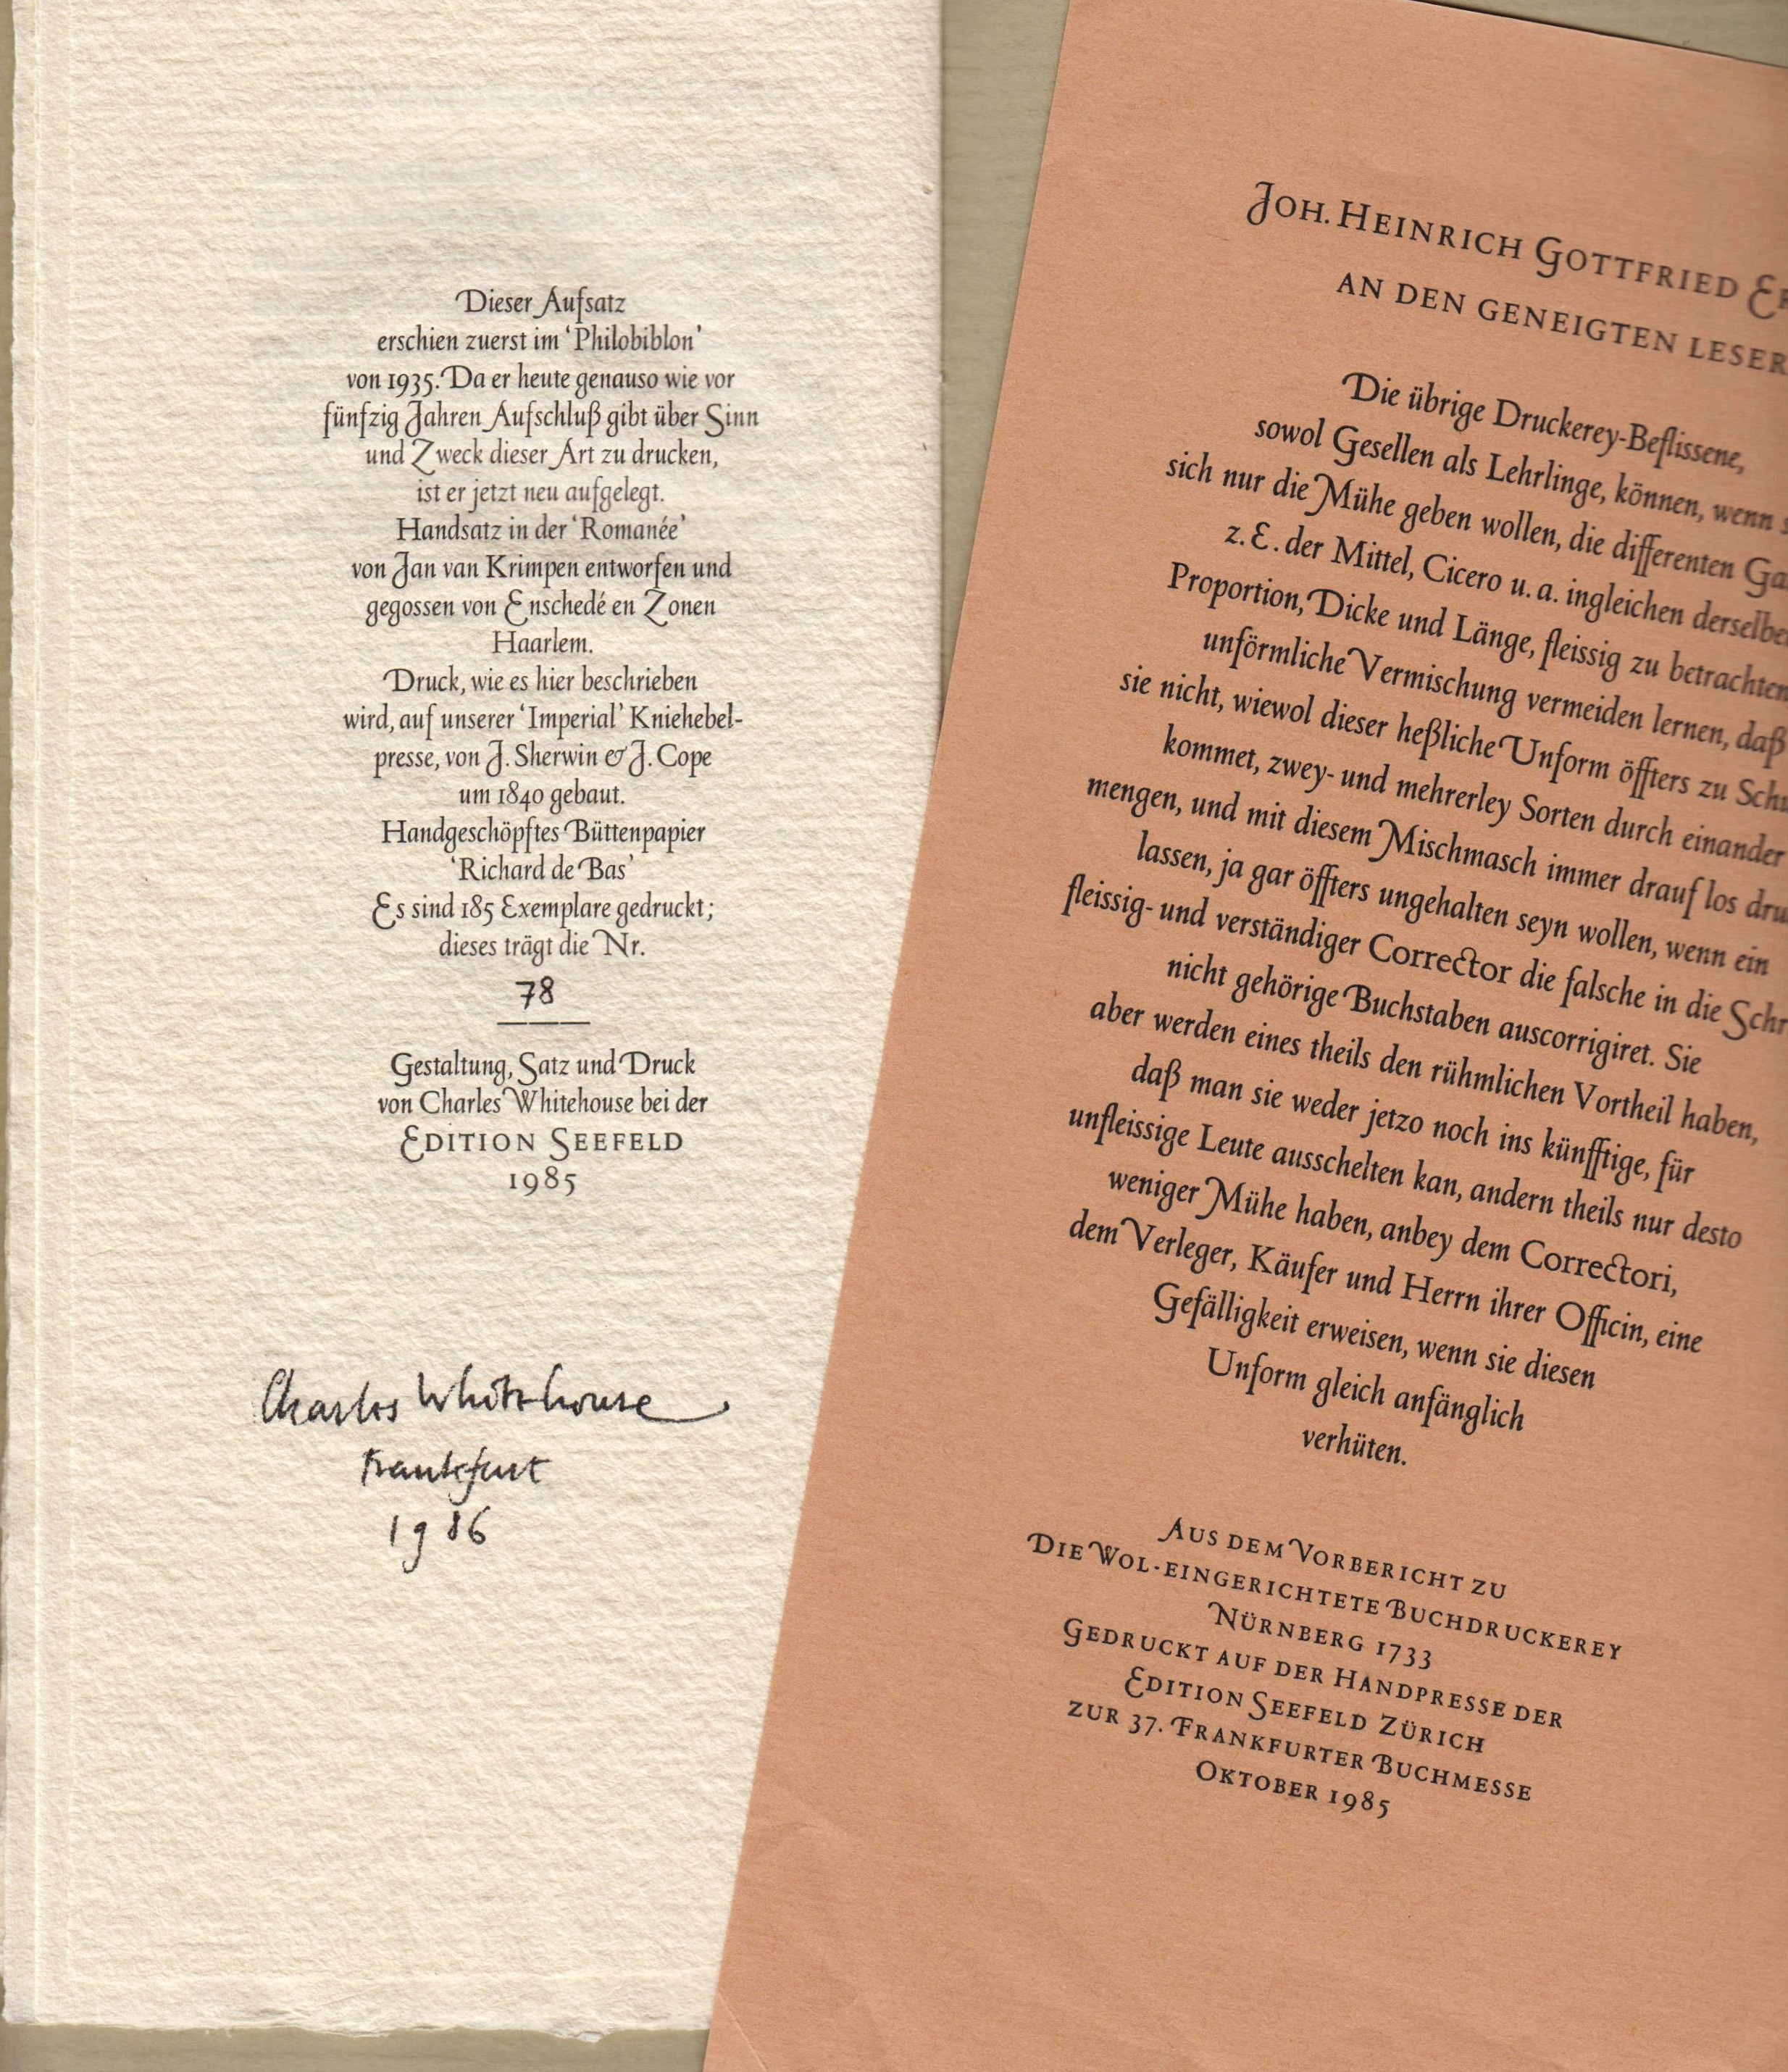 Dieser Aufsatz
erschien zuerst im ‘Philobiblon’
von 1935. Da er heute genauso wie vor
fünfzig Jahren Aufschluß gibt über Sinn
und Zweck dieser Art zu drucken,
ist er jetzt neu aufgelegt.
Handsatz in der ‘Romanée’
von Jan van Krimpen entworfen und
gegossen von Enschedé en Zonen
Haarlem.
Druck, wie es hier beschrieben
wird, auf unserer ‘Imperial’ Kniehebel-
presse, von J. Sherwin & J. Cope
um 1840 gebaut.
Handgeschöpftes Büttenpapier
‘Richard de Bas’
Es sind 185 Exemplare gedruckt;
dieses trägt die Nr.
78
Gestaltung, Satz und Druck
von Charles Whitehouse bei der
EDITION SEEFELD
1985
Charles Whitehouse
Frankfurt
1986
JOH. HEINRICH GOTTFRIED
AN DEN GENEIGTEN LESER
Die übrige Druckerey-Beflissene,
sowol Gesellen als Lehrlinge, können, wenn
sich nur die Mühe geben wollen, die differenten
z. E. der Mittel, Cicero u. a. ingleichen
Proportion, Dicke und Länge, fleissig zu betrachten
unförmliche Vermischung vermeiden lernen, daß
sie nicht, wiewol dieser heßliche Unform öffters zu
kommet, zwey- und mehrerley Sorten durch einander
mengen, und mit diesem Mischmasch immer drauf los
lassen, ja gar öffters ungehalten seyn wollen, wenn ein
fleissig- und verständiger Corrector die falsche in die
nicht gehörige Buchstaben auscorrigiret. Sie
aber werden eines theils den rühmlichen Vortheil haben,
daß man sie weder jetzo noch ins künfftige, für
unfleissige Leute ausschelten kan, andern theils nur desto
weniger Mühe haben, anbey dem Correctori,
dem Verleger, Käufer und Herrn ihrer Officin, eine
Gefälligkeit erweisen, wenn sie diesen
Unform gleich anfänglich
verhüten.
AUS DEM VORBERICHT ZU
DIE WOL-EINGERICHTETE BUCHDRUCKEREY
NÜRNBERG 1733
GEDRUCKT AUF DER HANDPRESSE DER
EDITION SEEFELD ZÜRICH
ZUR 37. FRANKFURTER BUCHMESSE
OKTOBER 1985